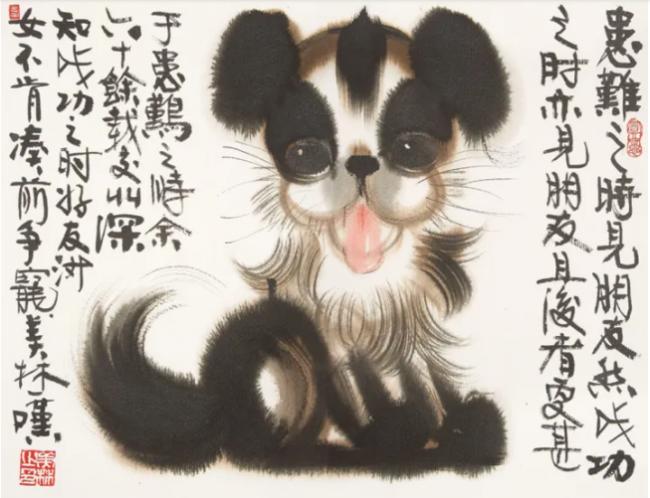 患難之時見朋友然成功
之时亦見朋友且後者更甚
于患難之時余
六十餘載交深
知成功之时好友
不肯凑前争寵美林嘆